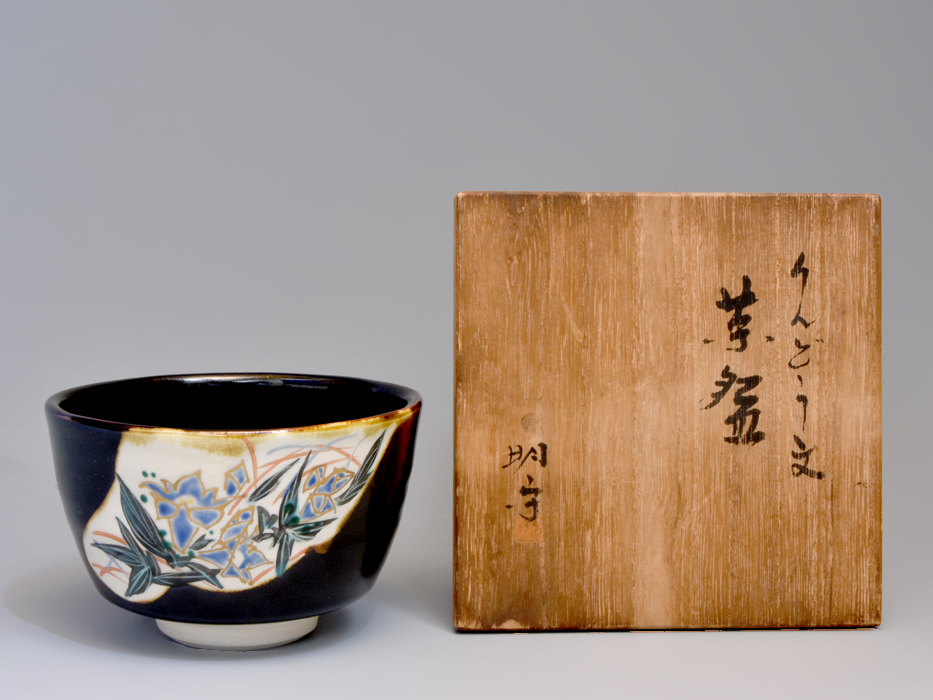 りんどう文
茶盌
明守